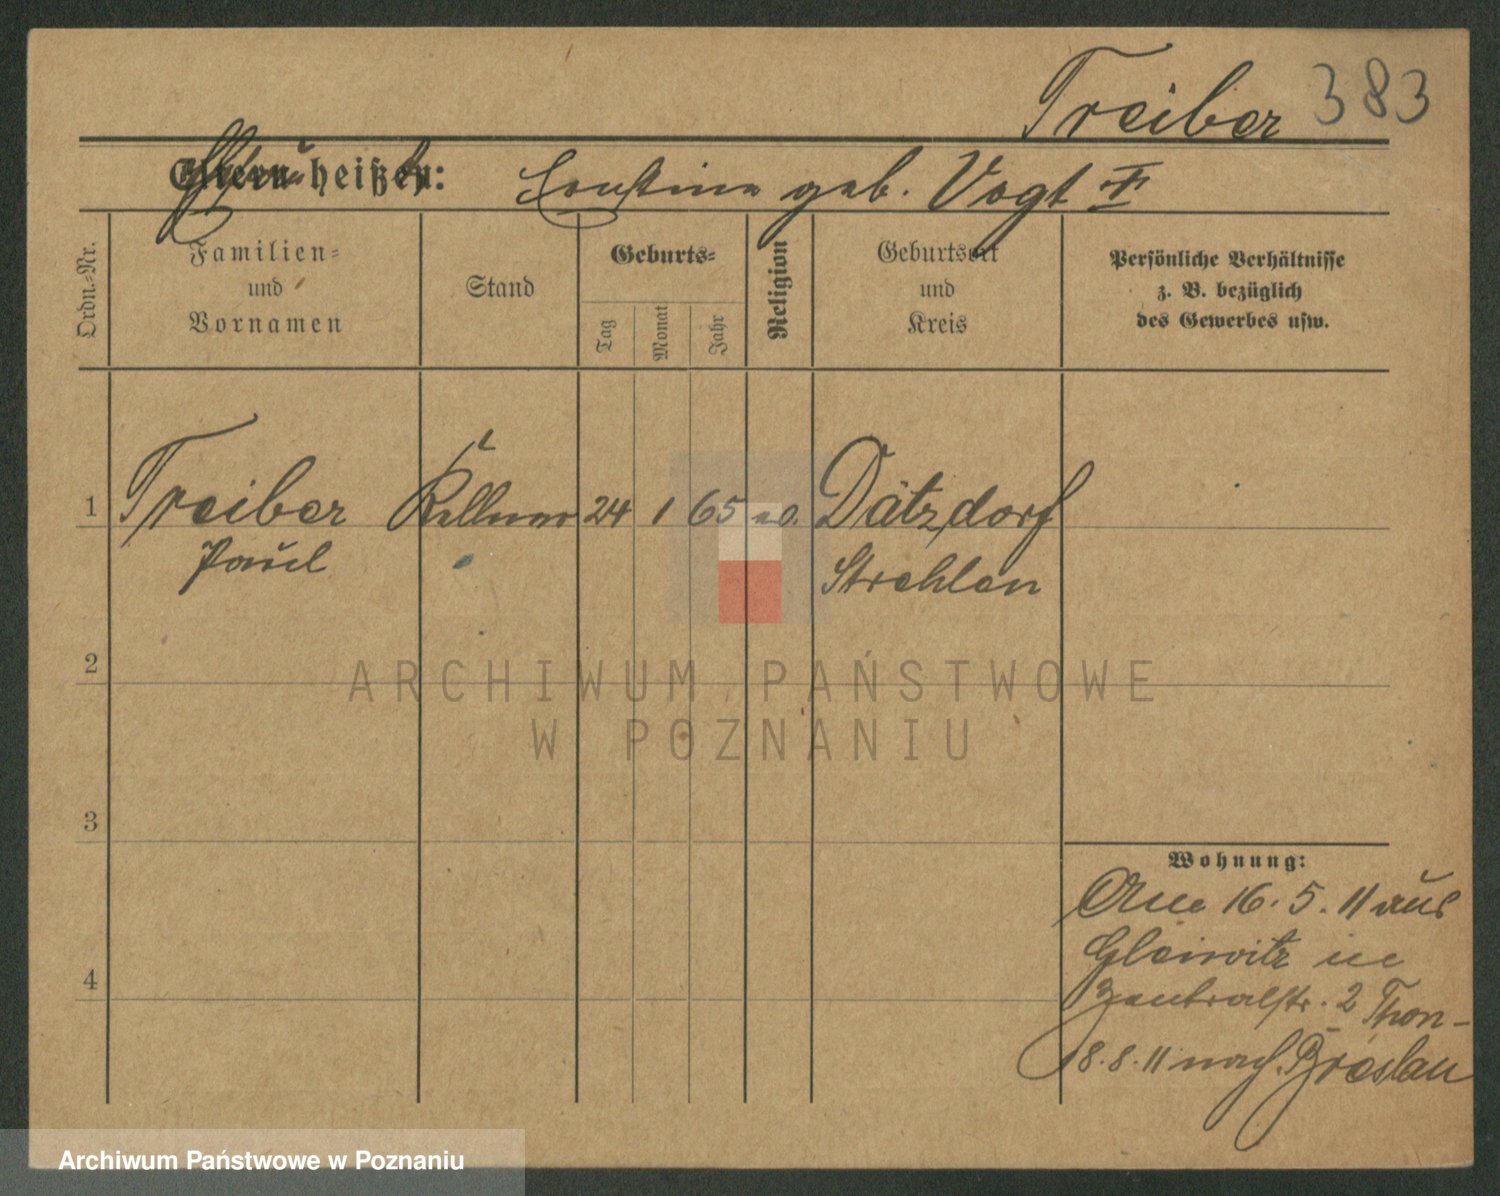 Treiber 383
Eltern heißen: Ernstine geb. Vogt
Ordn.-Nr.
Familien-
und
Vornamen
Stand
Geburts-
Tag
Monat
Jahr
Religion
Geburtsort
und
Kreis
Persönliche Verhältnisse
z. B. bezüglich
des Gewerbes usw.
1 Treiber Kellner 24 1 65 Dätzdorf
Paul Strehlen
2
3
4
Wohnung:
16. 5. 11 aus
Gleiwitz in
Zentralstr. 2 Thon-
18. 8. 11 nach Breslau
ARCHIWUM PAŃSTWOWE
W POZNANIU
Archiwum Państwowe w Poznaniu